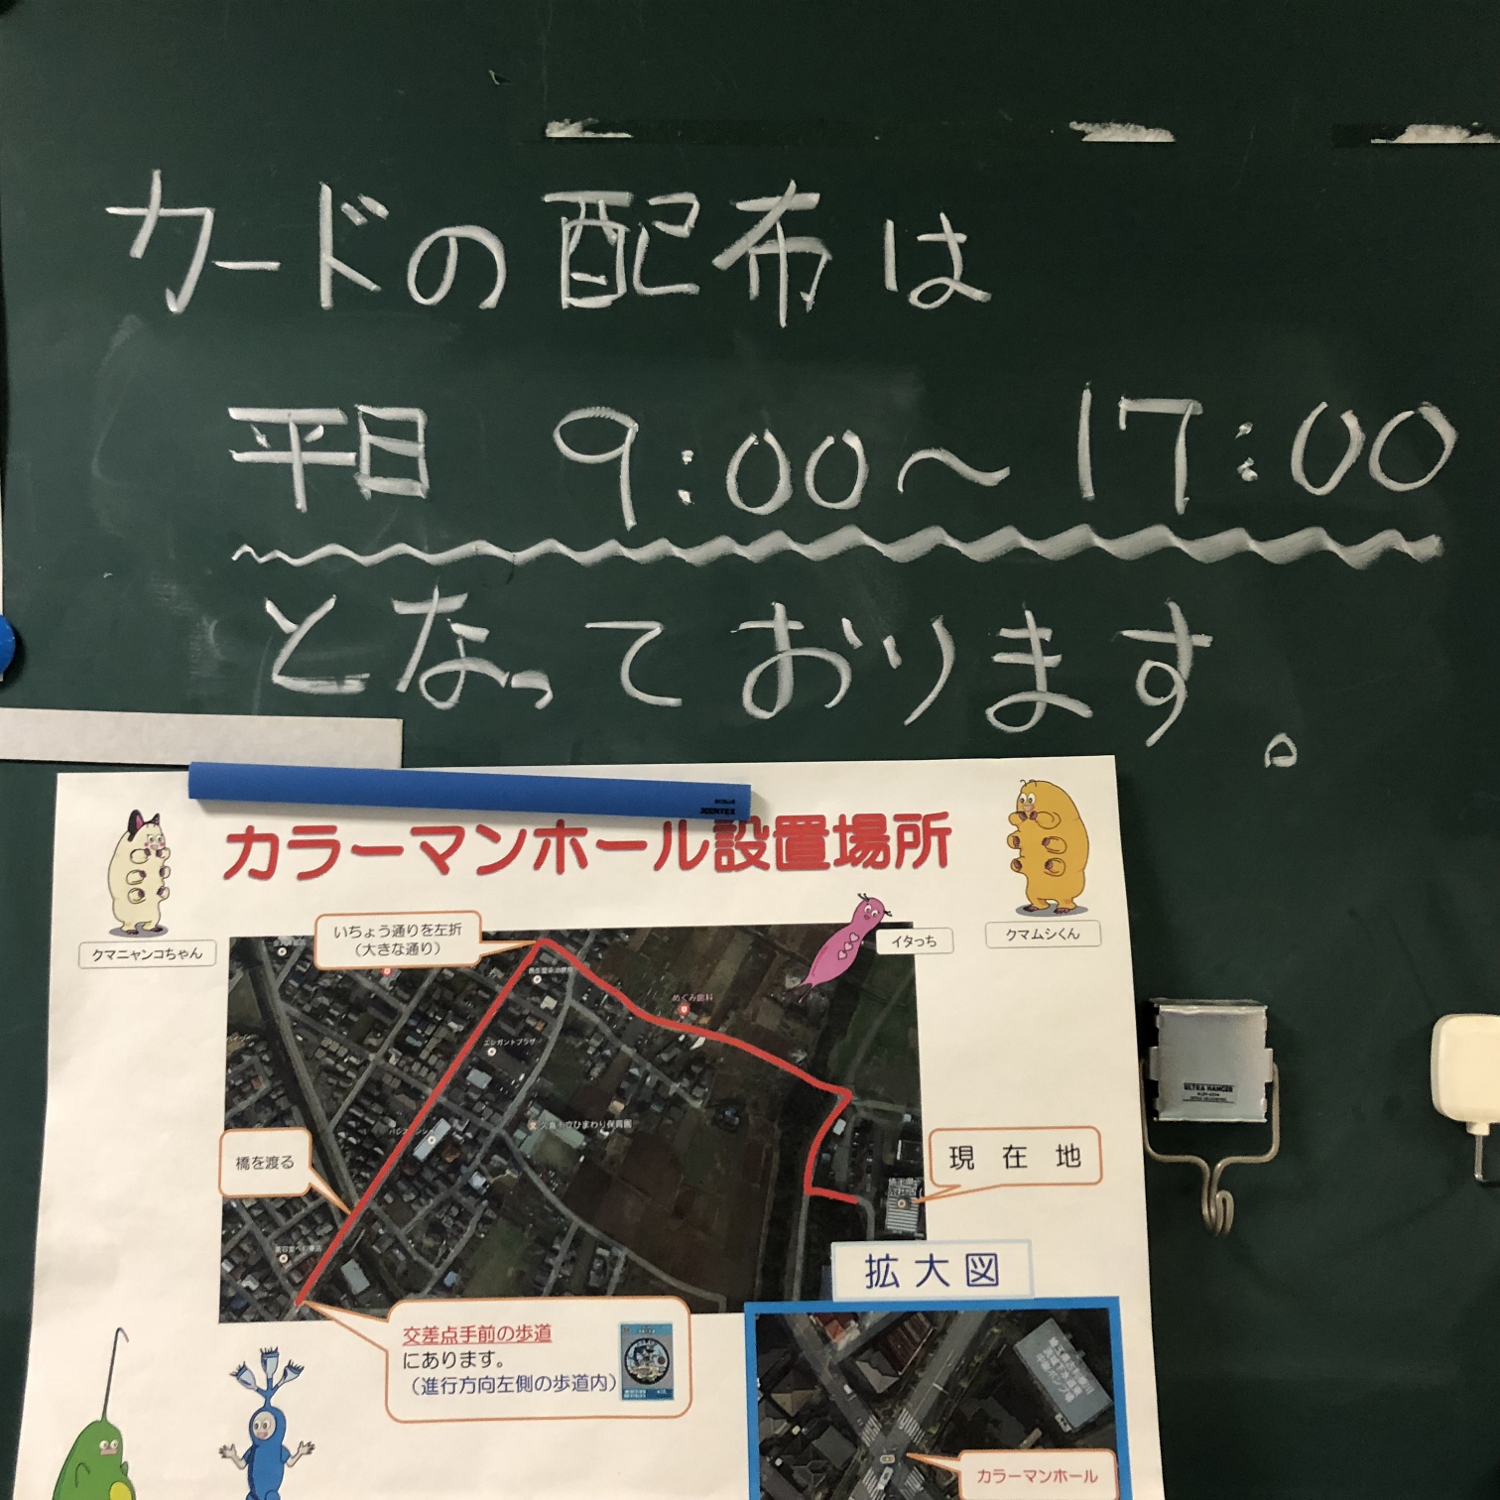 カードの配布は
平日 9:00～17:00
となっております。
カラーマンホール設置場所
クマニャンコちゃん
クマムシくん
イタっち
いちょう通りを左折
（大きな通り）
めぐみ歯科
エレガントプラザ
橋を渡る
現在地
拡大図
交差点手前の歩道
にあります。
（進行方向左側の歩道内）
カラーマンホール
ULTRA HANGER